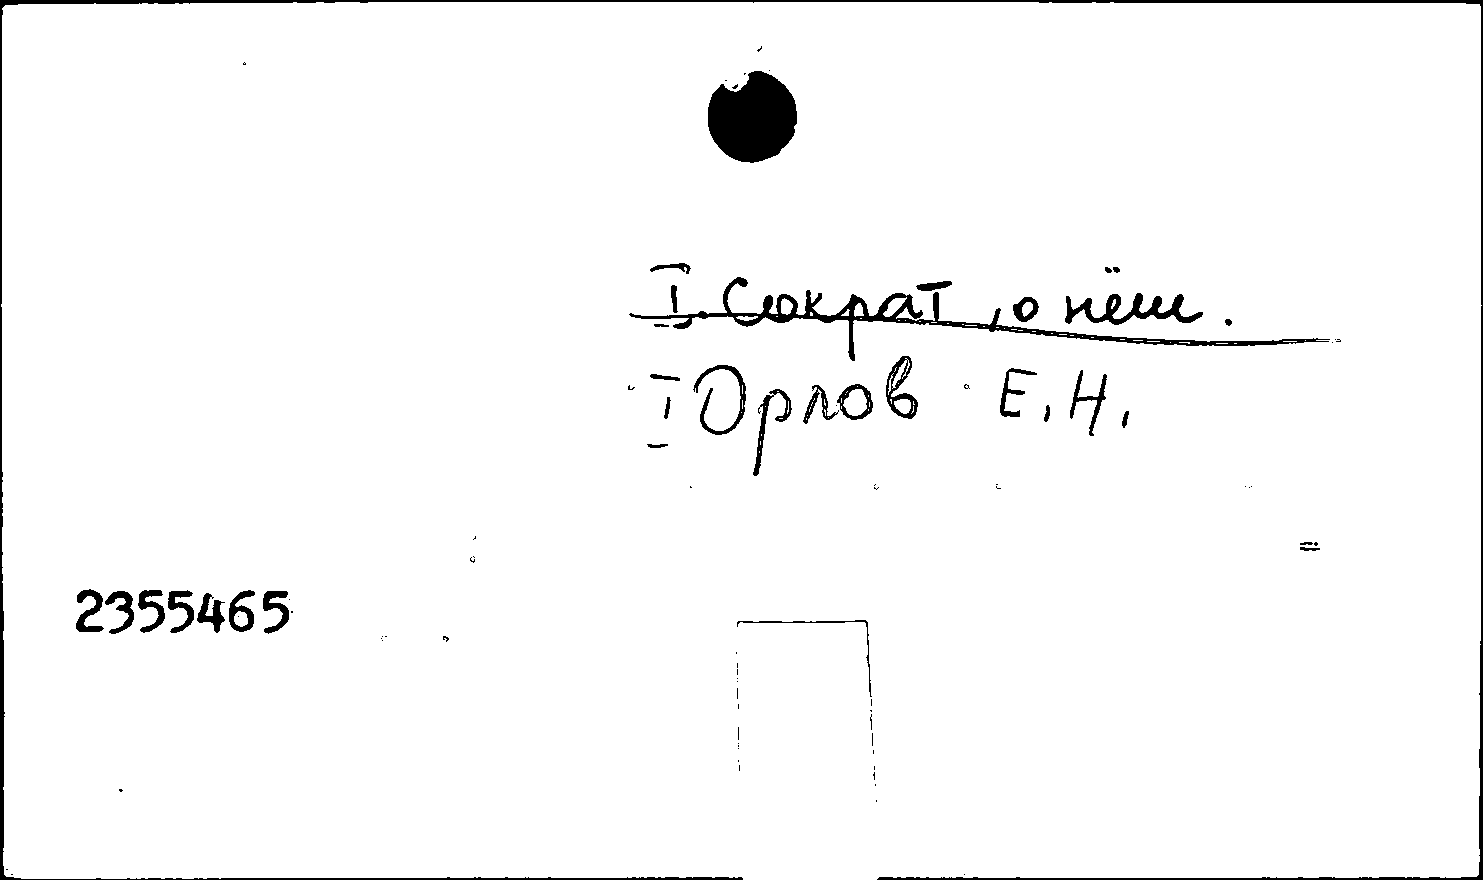 I. Сократ, о нём.
I Орлов Е.Н.
2355465